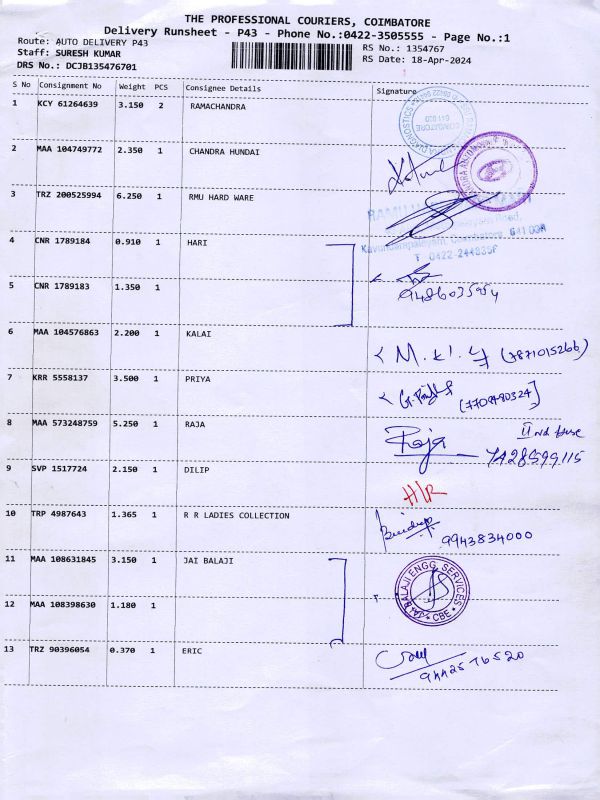 THE PROFESSIONAL COURIERS, COIMBATORE
Delivery Runsheet - P43 - Phone No.:0422-3505555 - Page No.:1
Route: AUTO DELIVERY P43
RS No.: 1354767
Staff: SURESH KUMAR
RS Date: 18-Apr-2024
DRS No.: DCJB135476701
S No Consignment No Weight PCS Consignee Details Signature
1 KCY 61264639 3.150 2 RAMACHANDRA
DIAGNOSTICS
COIMBATORE
2 MAA 104749772 2.350 1 CHANDRA HUNDAI
3 TRZ 200525994 6.250 1 RMU HARD WARE
Kavundampalayam, Coimbatore
T 0422-244835F
4 CNR 1789184 0.910 1 HARI
5 CNR 1789183 1.350 1
9486035954
6 MAA 104576863 2.200 1 KALAI M. (7871015266)
7 KRR 5558137 3.500 1 PRIYA (7708480324)
8 MAA 573248759 5.250 1 RAJA Raja IInd
9 SVP 1517724 2.150 1 DILIP H/R
10 TRP 4987643 1.365 1 R R LADIES COLLECTION 9943834000
11 MAA 108631845 3.150 1 JAI BALAJI
JAI BALAJI ENGG. SERVICES
CBE
12 MAA 108398630 1.180 1
13 TRZ 90396054 0.370 1 ERIC